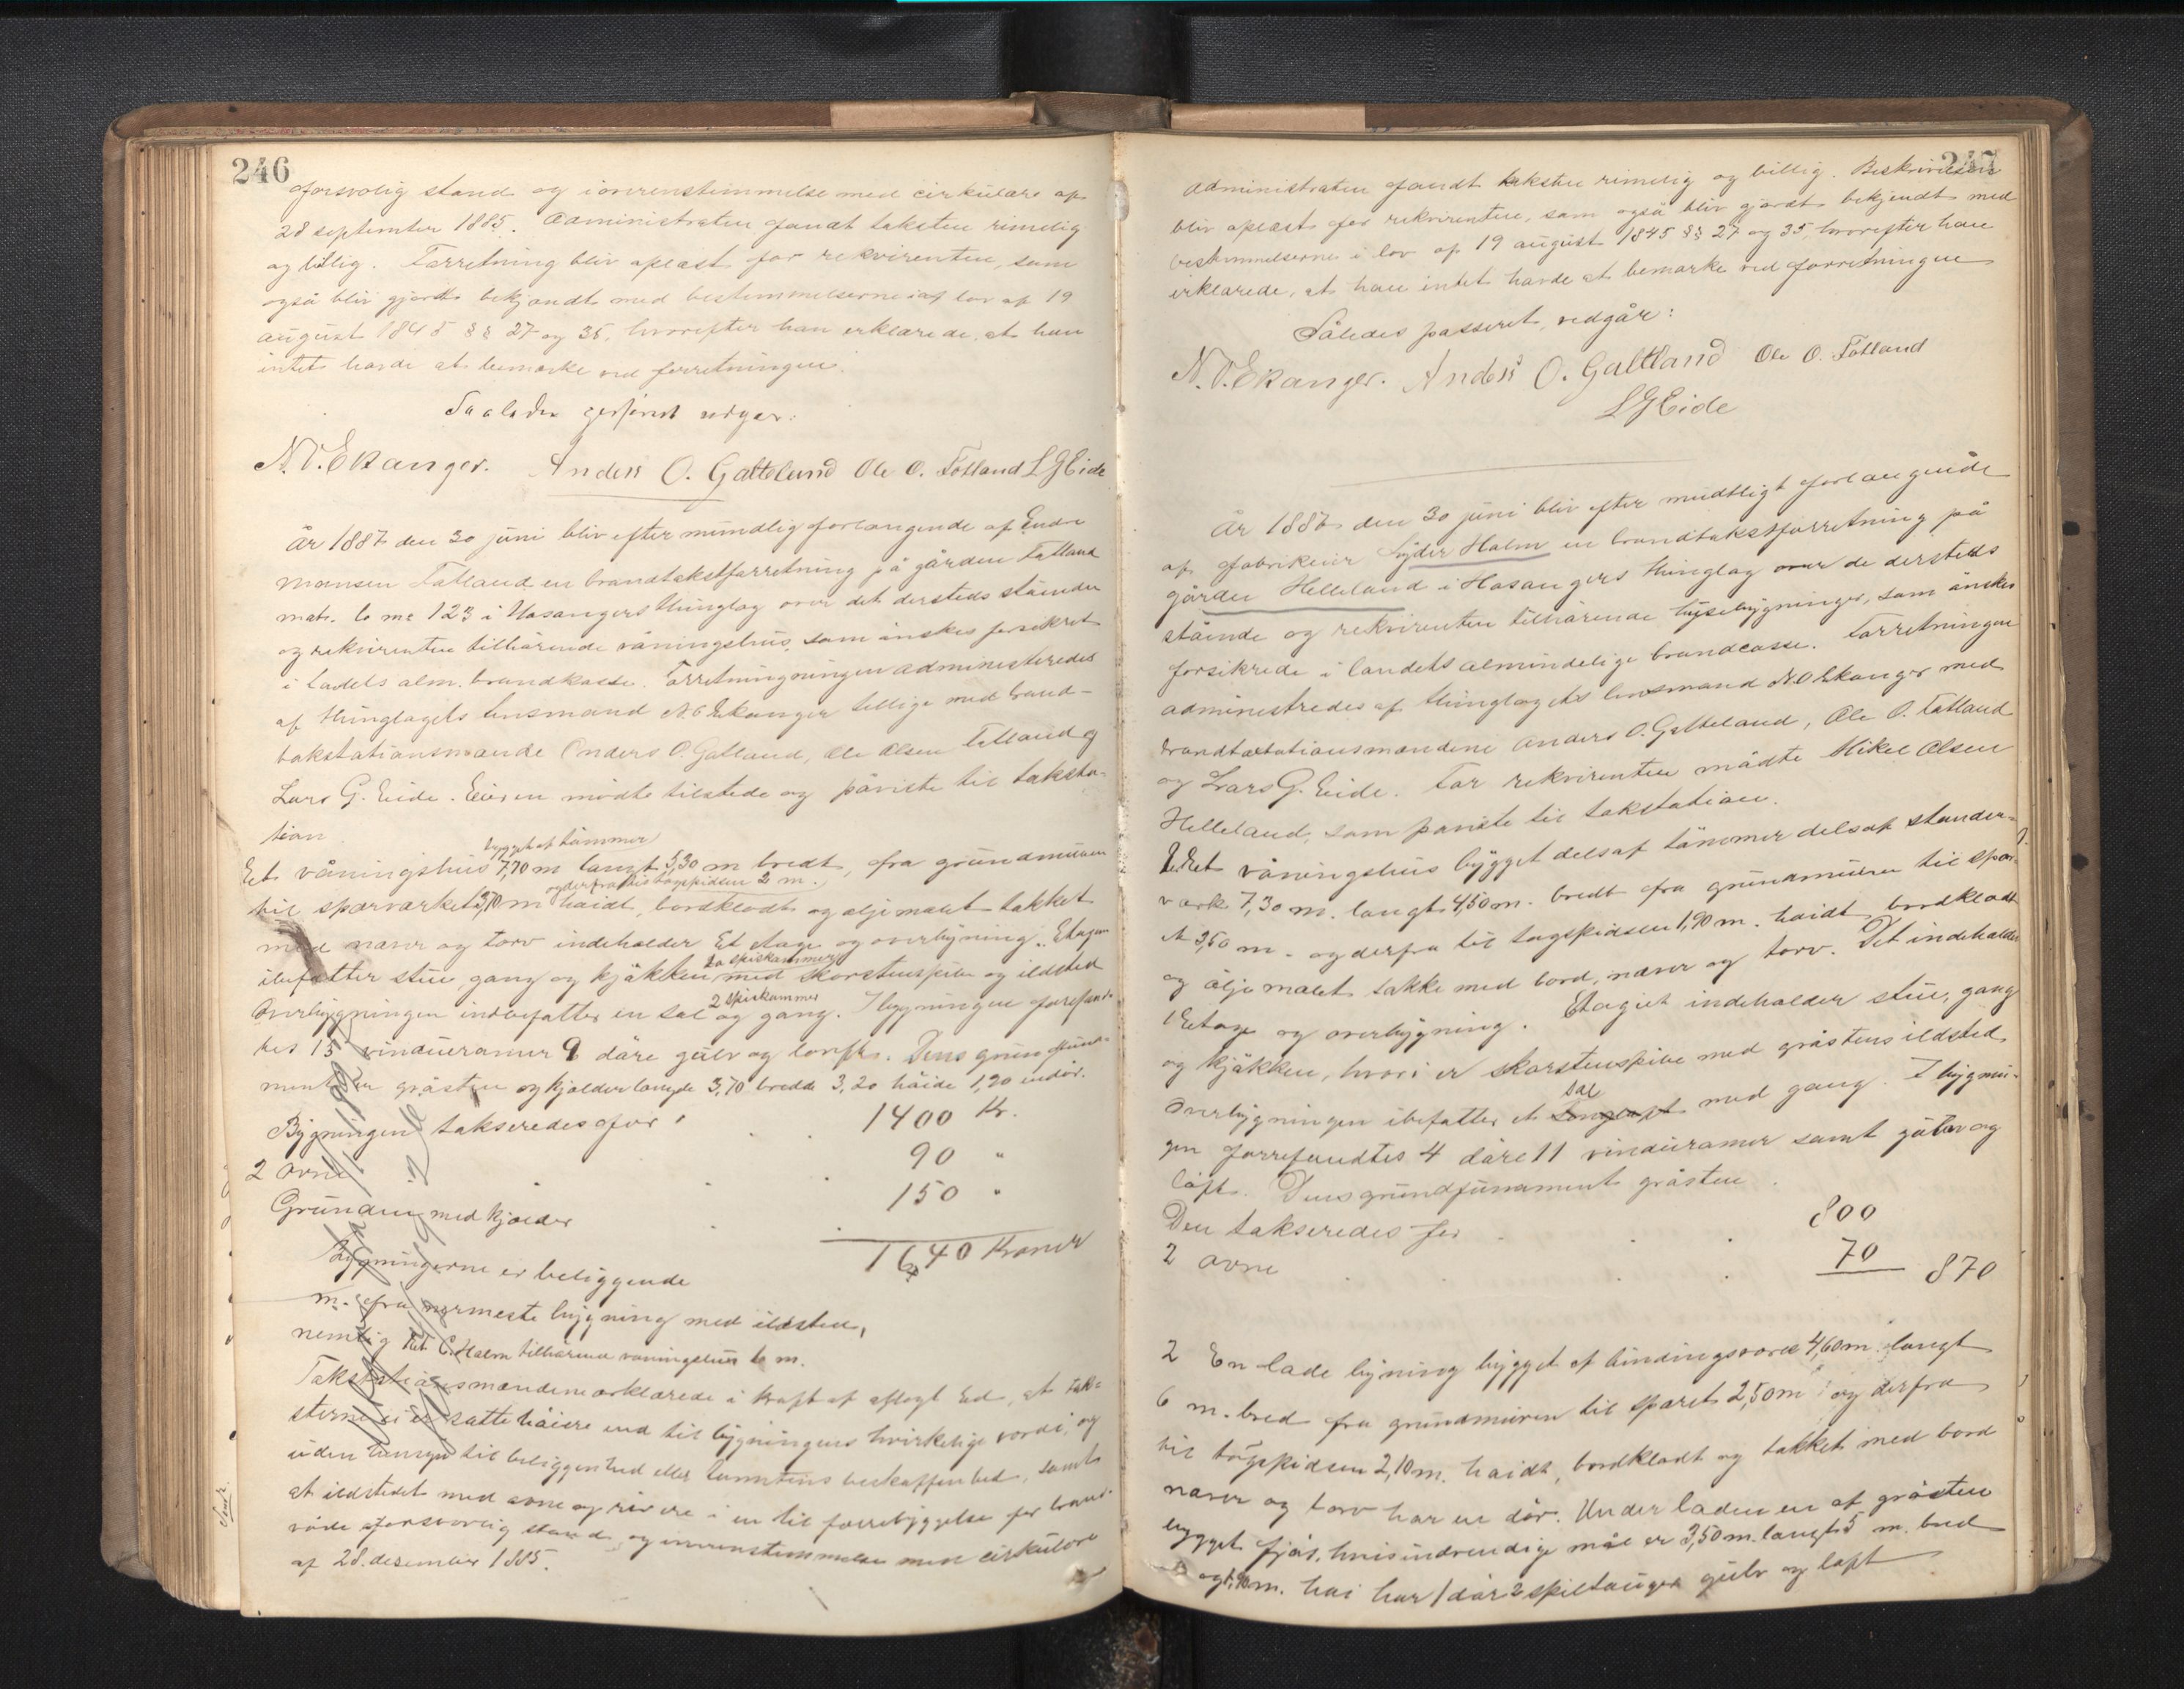 246
forsvolig stand og i overenstemmelse med cirkulære af
28 september 1885. Administraten fandt taksten rimelig
og billig. Forretning blev oplæst for rekvirenten, som
også blev gjordt bekjendt med bestemmelserne i lov af 19
august 1845 §§ 27 og 35, hvorefter han erklærede, at han
intet havde at bemærke ved forretningen.
Saaledes
N.O. Ekanger. Anders O. Galteland Ole O. Totland L G Eide
År 1887 den 30 juni blev efter mundlig forlangende af
Monsen Totland en brandtakstforretning på gården Totland
mat. 123 i Hosangers thinglag over det dersteds stående
og rekvirenten tilhørende våningshus, som ønskes forsikret
i landets alm. brandkasse. Forretningningen administeredes
af thinglagets lensmand N.O. Ekanger tillige med brand-
takstationsmænde Anders O. Galteland, Ole Olsen Totland og
Lars G. Eide. Eieren mødte tilstede og påviste til taksta-
tion
bygget af tømmer
Et våningshus 7,70 m langt 5,30 m bredt, fra grundmuren
og derfra til tagspidsen 2 m.
til sparværket 3,70 m høidt, bordklædt og oljemalet takket
med næver og torv indeholder Et etage og overbygning. Etagen
spiskammer
ibefatter stue, gang og kjøkken med skorstenspibe og ildsted
2 spiskammer
Overbygningen indbefatter en sal og gang. I bygningen forefand-
tes 15 vinduramer 9 døre gulv og loft. Dens grundfunda-
ment er gråsten og kjælder langde 3,70 bredde 3,20 høide 1,90 indv.
Bygningen takseredes for 1400 Kr.
2 ovne 90 "
Grunden med kjælder 150 "
1640 Kroner
Bygningerne er beliggende
m. fra nærmeste bygning med ildsted,
nemlig C. Halm tilhørende våningshus 6 m.
Takstationsmændene erklærede i kraft af aflagt Ed, at tak-
sterne ei er satte høiere end til bygningens virkelige værdi, og
uden hensyn til beliggenhed eller tomtens beskaffenhed, samt
at ildstedet med ovne og rør ere i en til forrebyggelse for brand-
våde forsvarlig stand og i overenstemmelse med cirkulære
af 28. desember 1885.
247
Administraten fandt taksten rimelig og billig. Beskrivelsen
blev oplæst for rekvirenten, som også blev gjordt bekjendt med
bestemmelserne i lov af 19 august 1845 §§ 27 og 35, hvorefter han
erklærede, at han intet havde at bemærke ved forretningen
Således passeret, vedgår:
N.O. Ekanger. Anders O. Galteland Ole O. Totland
L G Eide
År 1887 den 30 juni blev efter mundtligt forlangende
af fabrikeur Syder Halm en brandtakstforretning på
gården Helleland i Hosangers thinglag over de dersteds
stående og rekvirenten tilhørende husebygninger, som ønskes
forsikrede i landets almindelige brandcasse. Forretningen
administredes af thinglagets lensmand N.O. Ekanger med
brandtakstationsmændene Anders O. Galteland, Ole O. Totland
og Lars G. Eide. For rekvirenten mødte Mikel Olsen
Helleland, som påviste til takstation.
1. Et våningshus bygget dels af tømmer dels af stander-
værk 7,30 m. langt 4,50 m. bredt fra grundmuren til spar-
et 3,50 m. og derfra til tagspidsen 1,90 m. høidt, bordklædt
og oljemalet takke med bord, næver og torv. Det indeholder
1 Etage og overbygning. Etagiet indeholder stue, gang
og kjøkken, hvori er skorstenspibe med gråstens ildsted,
sal
Overbygningen ibefatter et med gang. I bygnin-
gen forrefandtes 4 døre 11 vinduramer samt gulv og
loft. Dens grundfunament gråsten.
Den takseredes for 800
2 ovne 70 870
2 En lade bygning bygget af bindingsværk 4,60 m. langt
6 m. bred fra grundmuren til sparet 2,50 m og derfra
til tagspidsen 2,10 m. høidt, bordklædt og takket med bord
næver og torv har en dør. Under laden en af gråsten
bygget fjøs, hvis indvendige mål er 3,50 m. langt 5 m. bred
og 1,90 m. høi har 1 dør 2 spiltauger gulv og loft